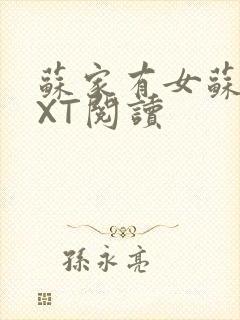 蘇家有女蘇
XT閱讀
孫永亮